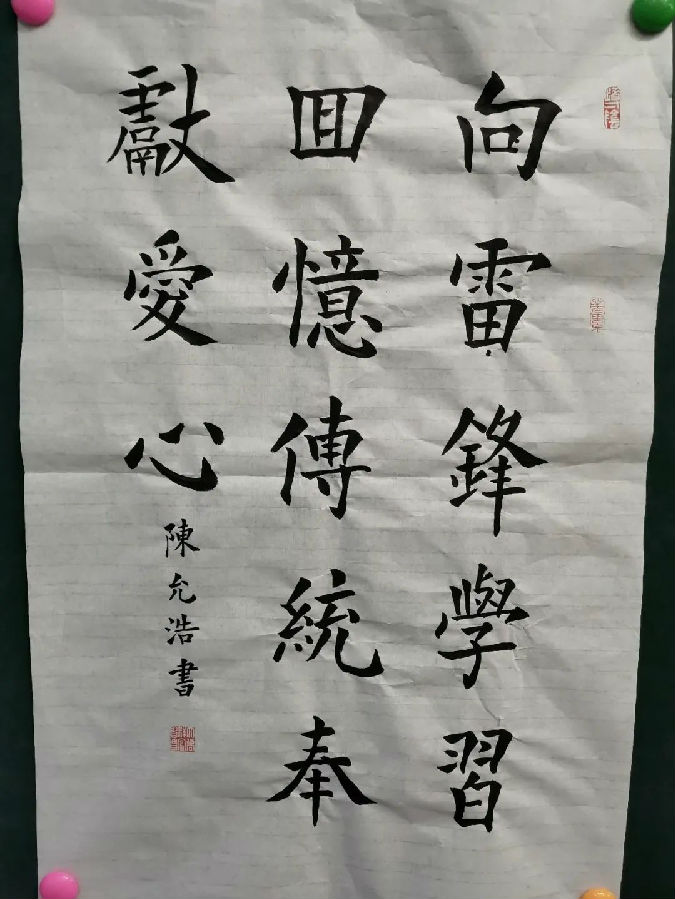 向雷鋒學習
回憶傳統奉
獻愛心
陳允浩書